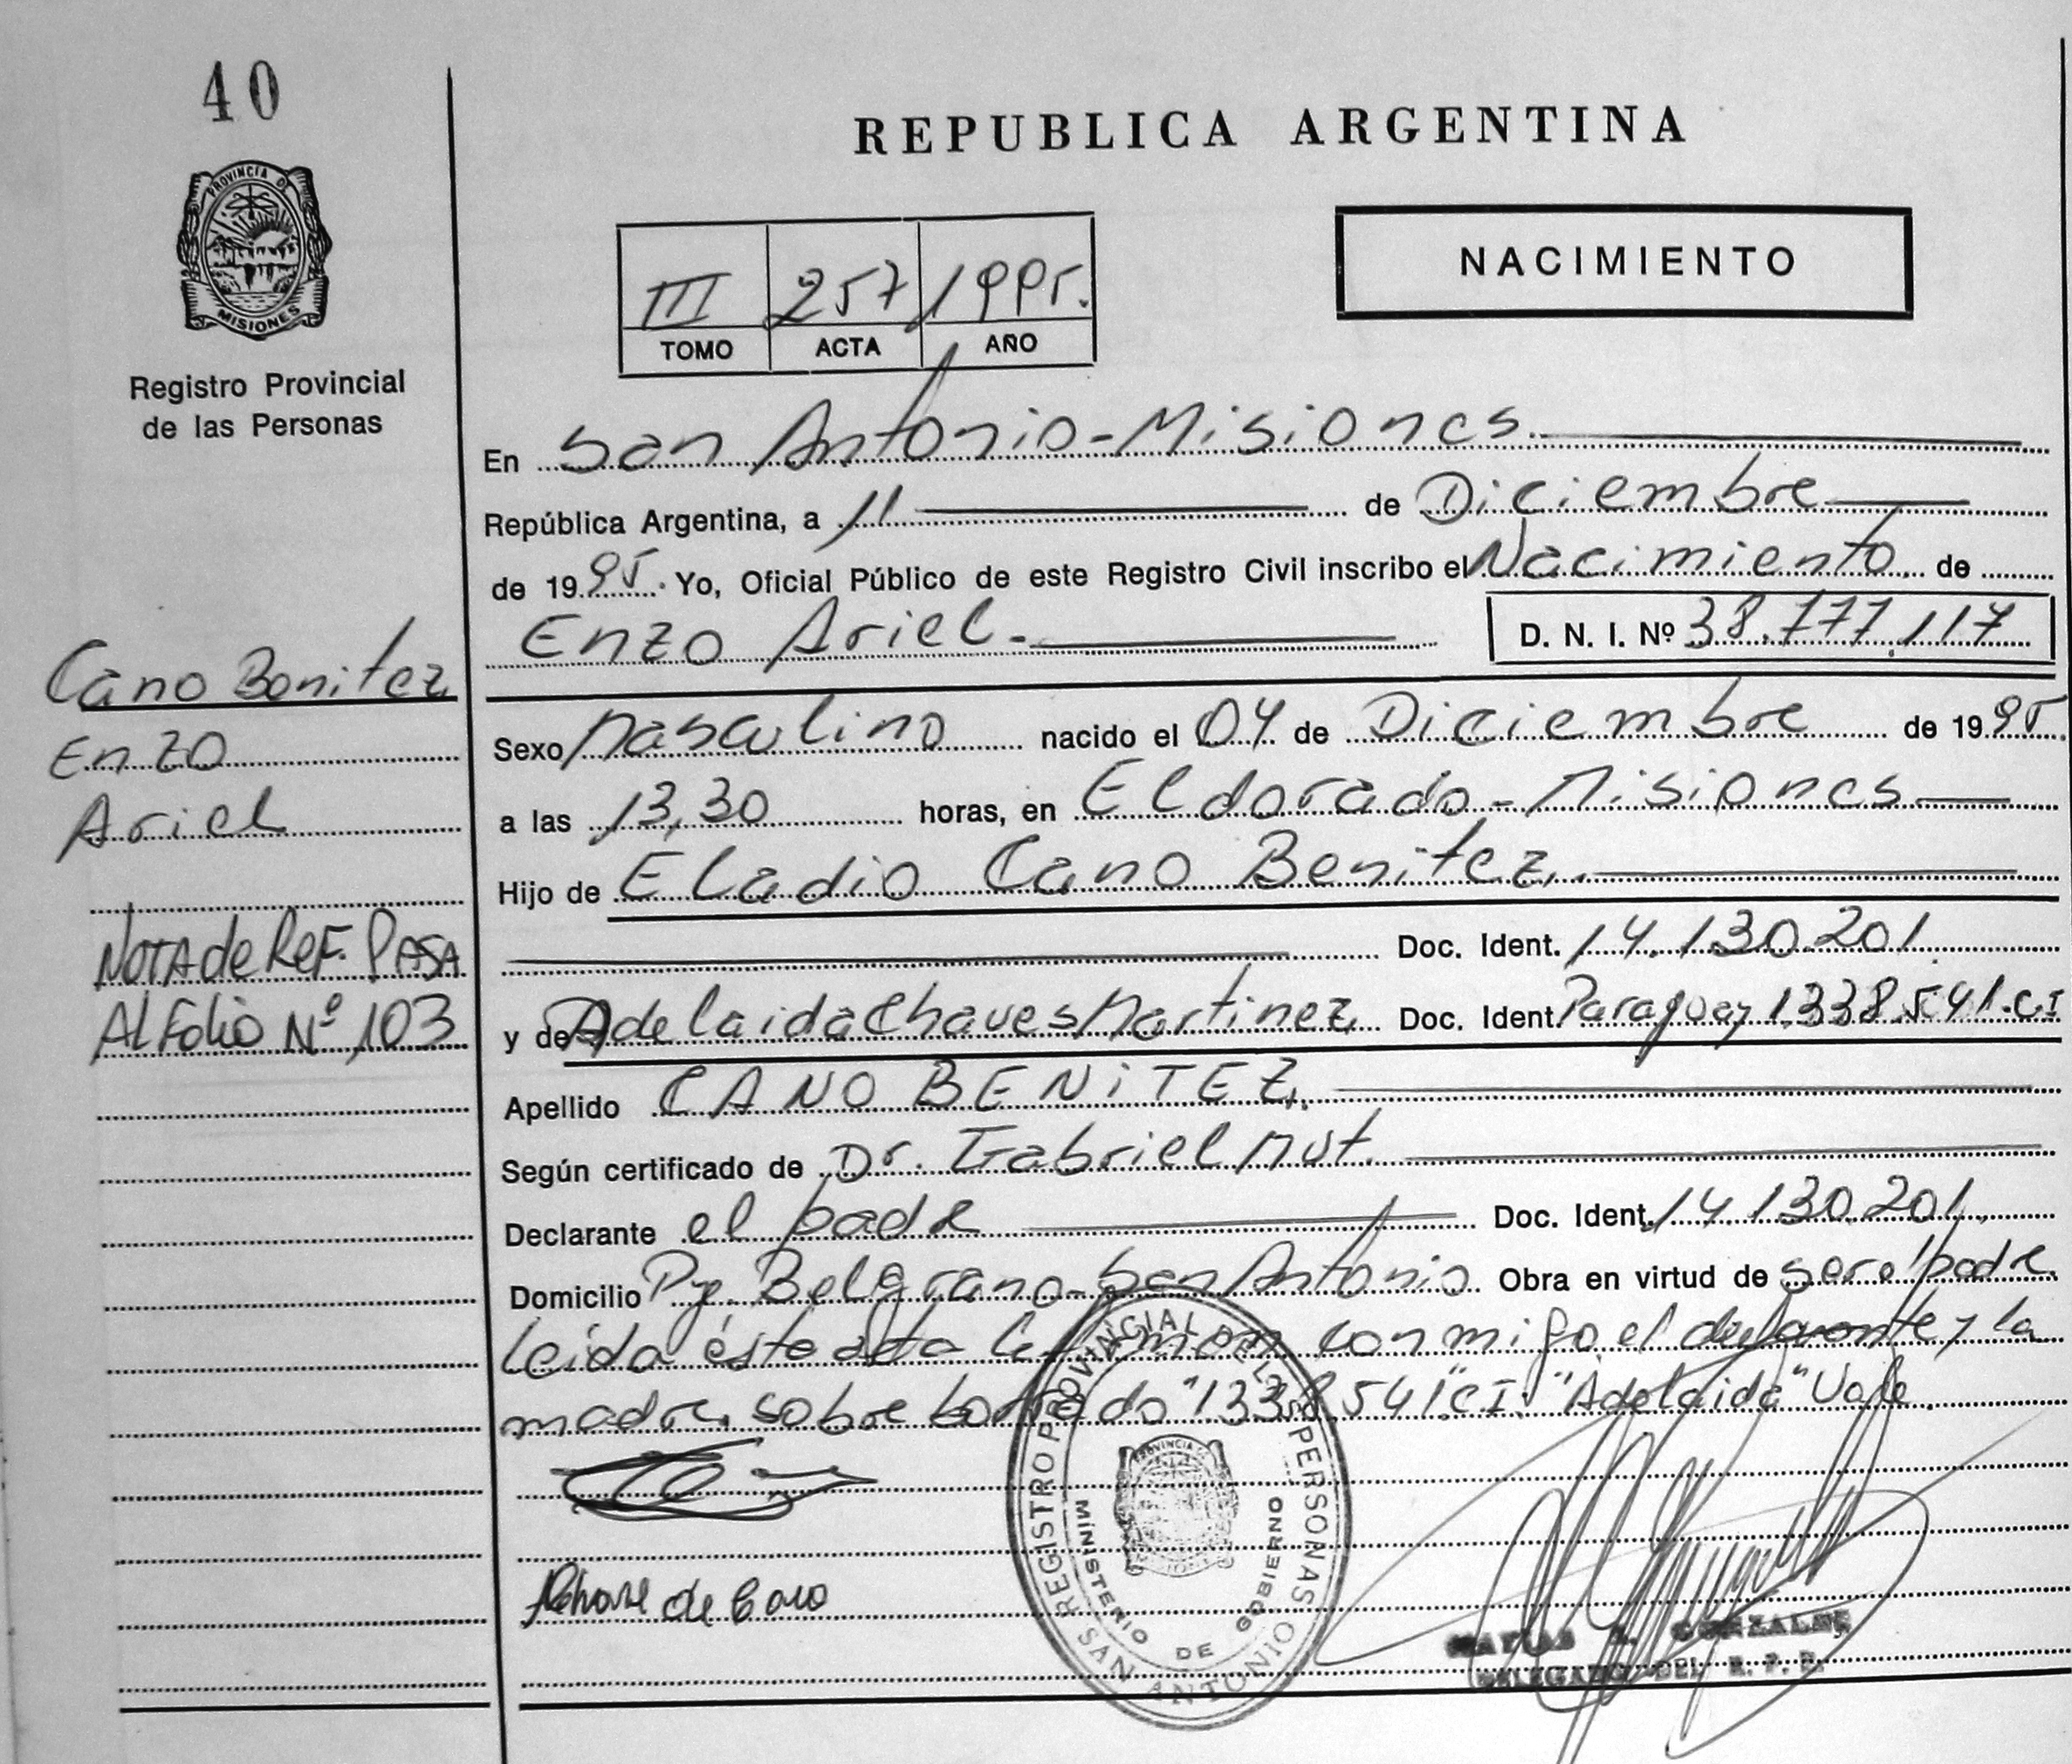 40
PROVINCIA DE
MISIONES
Registro Provincial
de las Personas
REPUBLICA ARGENTINA
NACIMIENTO
III 257 1995.
TOMO ACTA AÑO
En San Antonio-Misiones.
República Argentina, a 11 de Diciembre
de 1995. Yo, Oficial Público de este Registro Civil inscribo el Nacimiento de
Enzo Ariel. D. N. I. Nº 38.777.117
Cano Benitez
Enzo
Ariel
Sexo Masculino nacido el 04 de Diciembre de 1995
a las 13,30 horas, en Eldorado-Misiones
Hijo de Eladio Cano Benitez.
Doc. Ident. 14.130.201
NOTA de REF. PASA
Al Folio Nº 103
y de Adelaida Chaves Martinez Doc. Ident. Paraguay 1.338.541.CI
Apellido CANO BENITEZ.
Según certificado de Dr. Gabriel Mut.
Declarante el padre Doc. Ident. 14.130.201
Domicilio Pje. Belgrano-San Antonio Obra en virtud de ser el padre.
Leída ésta acta la firman conmigo el declarante y la
madre. sobre borrado "1338.541"CI. "Adelaida" Vale.
REGISTRO PROVINCIAL DE LAS PERSONAS
PROVINCIA DE
MINISTERIO DE GOBIERNO
SAN ANTONIO
de Cano
GONZALEZ
DELEGADO DEL R. P. P.